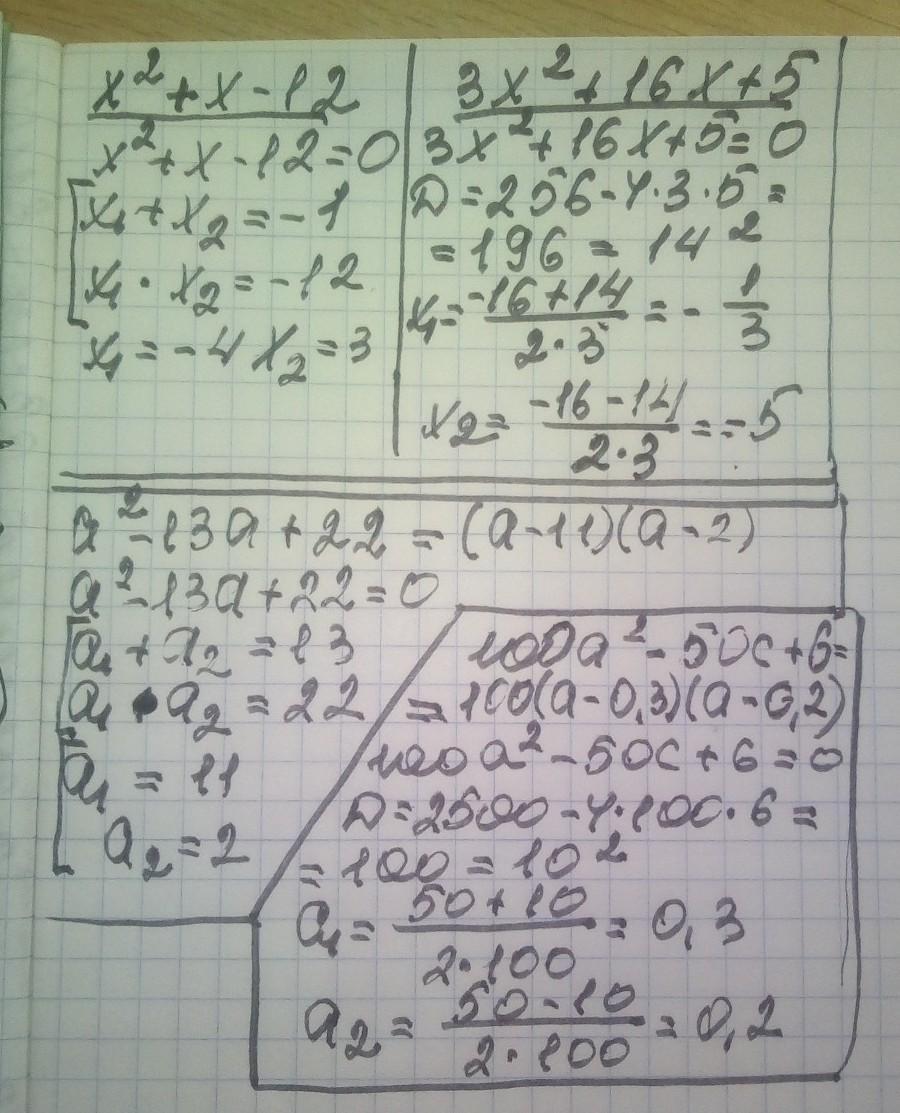 x² + x - 12
x² + x - 12 = 0
x₁ + x₂ = -1
x₁ · x₂ = -12
x₁ = -4 x₂ = 3
3x² + 16x + 5
3x² + 16x + 5 = 0
D = 256 - 4·3·5 =
= 196 = 14²
x₁ = (-16 + 14)/(2·3) = - 1/3
x₂ = (-16 - 14)/(2·3) = = -5
a² - 13a + 22 = (a - 11)(a - 2)
a² - 13a + 22 = 0
a₁ + a₂ = 13
a₁ · a₂ = 22
a₁ = 11
a₂ = 2
100a² - 50c + 6 =
= 100(a - 0,3)(a - 0,2)
100a² - 50c + 6 = 0
D = 2500 - 4·100·6 =
= 100 = 10²
a₁ = (50 + 10)/(2·100) = 0,3
a₂ = (50 - 10)/(2·100) = 0,2